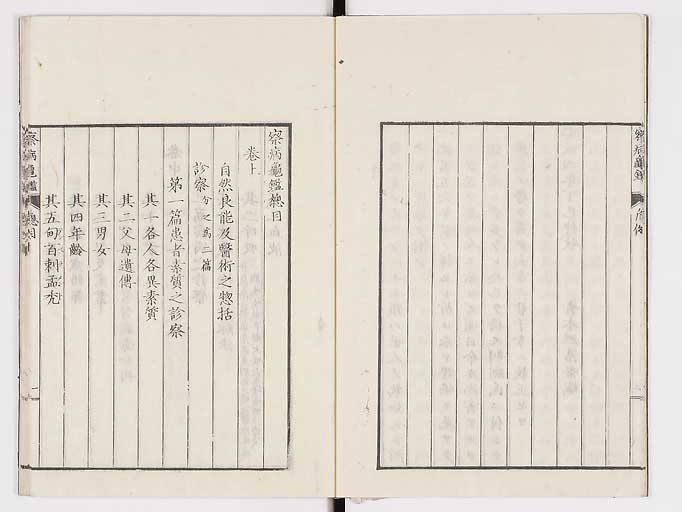 察病亀鑑
察病龜鑑總目
卷上
自然良能及醫術之惣括
診察 分之為二篇
第一篇患者素質之診察
其一各人各異素質
其二父母遺傳
其三男女
其四年齡
其五甸百刺孟夛
察病龜鑑 總目 一